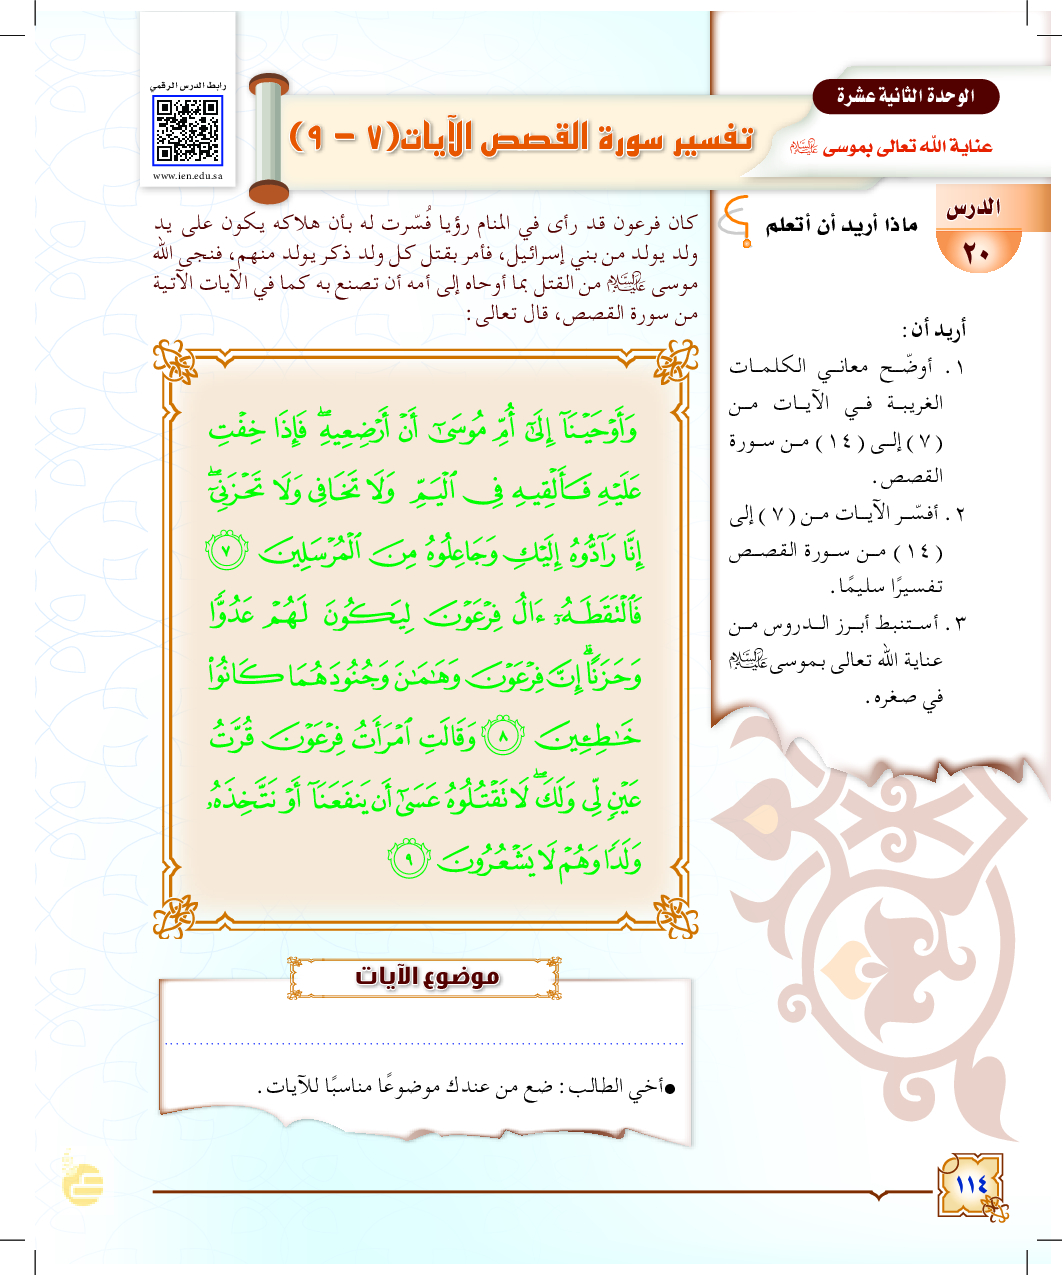 رابط الدرس الرقمي
www.ien.edu.sa
الوحدة الثانية عشرة
عناية الله تعالى بموسى عليه السلام
تفسير سورة القصص الآيات (٧ – ٩)
الدرس
٢٠
ماذا أريد أن أتعلم
أريد أن :
١. أوضّح معاني الكلمات
الغريبة في الآيات من
(٧) إلى (١٤) من سورة
القصص.
٢. أفسّر الآيات من (٧) إلى
(١٤) من سورة القصص
تفسيرًا سليمًا.
٣. أستنبط أبرز الدروس من
عناية الله تعالى بموسى عليه السلام
في صغره.
كان فرعون قد رأى في المنام رؤيا فُسّرت له بأن هلاكه يكون على يد
ولد يولد من بني إسرائيل، فأمر بقتل كل ولد ذكر يولد منهم، فنجى الله
موسى عليه السلام من القتل بما أوحاه إلى أمه أن تصنع به كما في الآيات الآتية
من سورة القصص، قال تعالى:
وَأَوْحَيْنَآ إِلَىٰٓ أُمِّ مُوسَىٰٓ أَنْ أَرْضِعِيهِ ۖ فَإِذَا خِفْتِ
عَلَيْهِ فَأَلْقِيهِ فِى ٱلْيَمِّ وَلَا تَخَافِى وَلَا تَحْزَنِىٓ ۖ
إِنَّا رَآدُّوهُ إِلَيْكِ وَجَاعِلُوهُ مِنَ ٱلْمُرْسَلِينَ ٧
فَٱلْتَقَطَهُۥٓ ءَالُ فِرْعَوْنَ لِيَكُونَ لَهُمْ عَدُوًّا
وَحَزَنًا ۗ إِنَّ فِرْعَوْنَ وَهَـٰمَـٰنَ وَجُنُودَهُمَا كَانُوا۟
خَـٰطِـِٔينَ ٨ وَقَالَتِ ٱمْرَأَتُ فِرْعَوْنَ قُرَّتُ
عَيْنٍ لِّى وَلَكَ ۖ لَا تَقْتُلُوهُ عَسَىٰٓ أَن يَنفَعَنَآ أَوْ نَتَّخِذَهُۥ
وَلَدًا وَهُمْ لَا يَشْعُرُونَ ٩
موضوع الآيات
● أخي الطالب : ضع من عندك موضوعًا مناسبًا للآيات.
١١٤